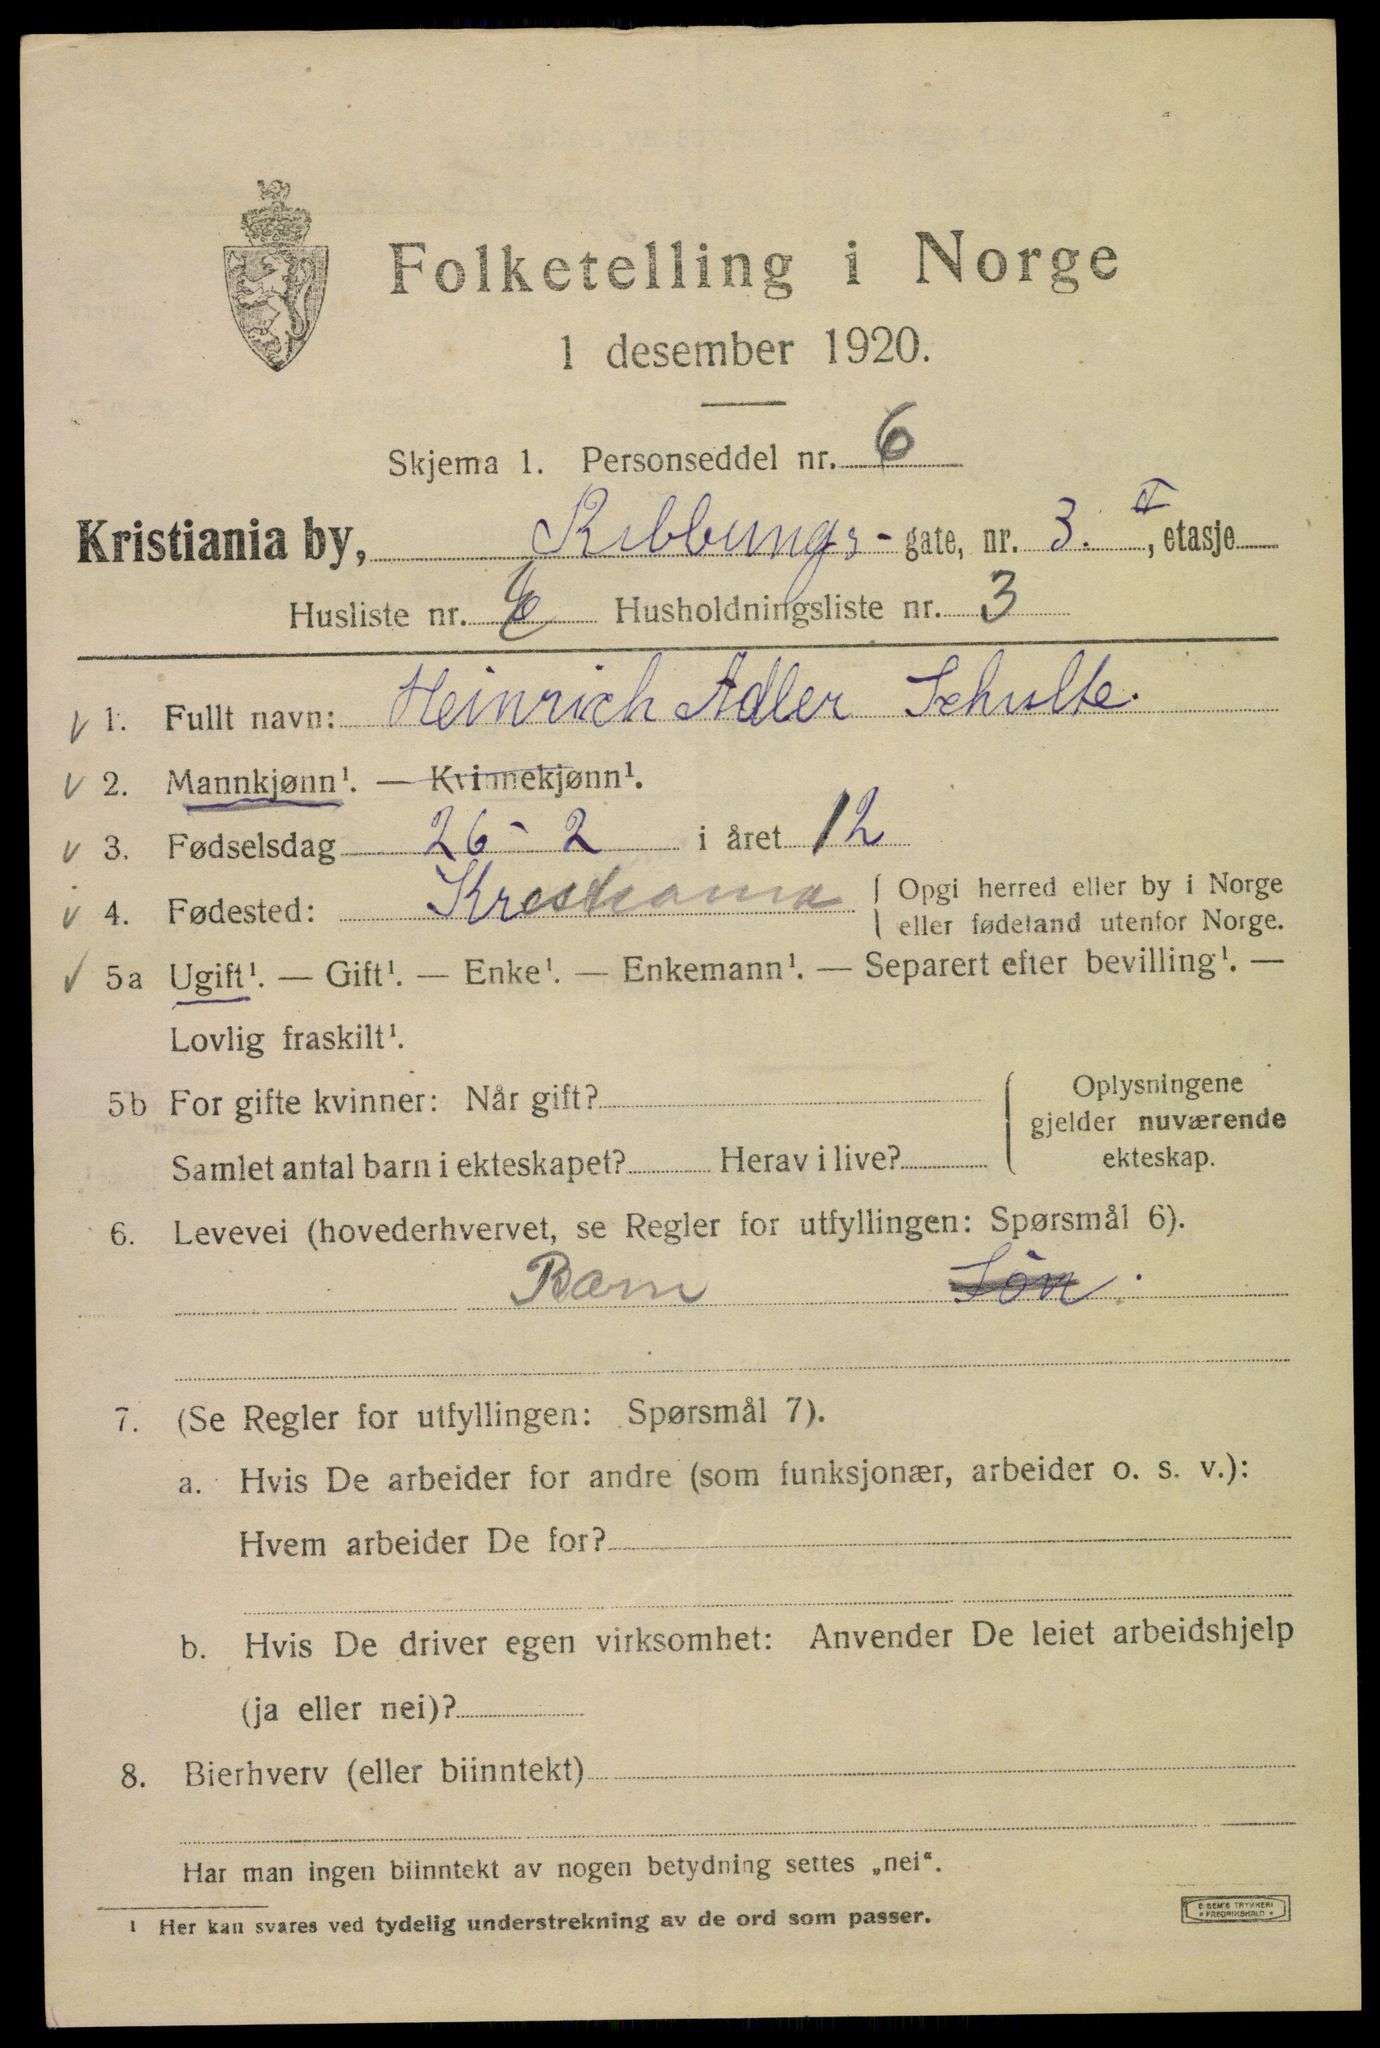 Folketelling i Norge
1 desember 1920.
Skjema 1. Personseddel nr. 6
Kristiania by, Ribbungs- gate, nr. 3. , etasje
Husliste nr. Husholdningsliste nr. 3
1. Fullt navn: Heinrich Adler Schulte.
2. Mannkjønn¹. — Kvinnekjønn¹.
3. Fødselsdag 26-2 i året 12
4. Fødested: Kristiania Opgi herred eller by i Norge
eller fødeland utenfor Norge.
5a Ugift¹. — Gift¹. — Enke¹. — Enkemann¹. — Separert efter bevilling¹. —
Lovlig fraskilt¹.
5b For gifte kvinner: Når gift? Oplysningene
gjelder nuværende
Samlet antal barn i ekteskapet? Herav i live? ekteskap.
6. Levevei (hovederhvervet, se Regler for utfyllingen: Spørsmål 6).
Barn Sön.
7. (Se Regler for utfyllingen: Spørsmål 7).
a. Hvis De arbeider for andre (som funksjonær, arbeider o. s. v.):
Hvem arbeider De for?
b. Hvis De driver egen virksomhet: Anvender De leiet arbeidshjelp
(ja eller nei)?
8. Bierhverv (eller biinntekt)
Har man ingen biinntekt av nogen betydning settes „nei“.
¹ Her kan svares ved tydelig understrekning av de ord som passer.
E SEM'S TRYKKERI
FREDRIKSHALD